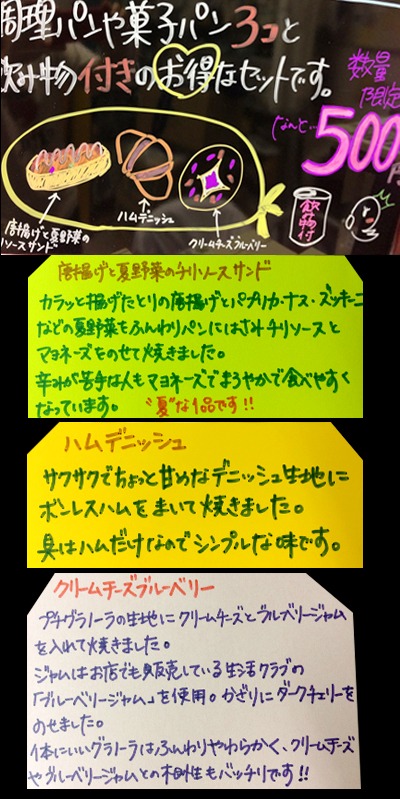 調理パンや菓子パン3コと
飲み物付きのお得なセットです。
数量
限定
なんと…
500円
唐揚げと夏野菜の
チリソースサンド
ハムデニッシュ
クリームチーズブルーベリー
飲み物付
唐揚げと夏野菜のチリソースサンド
カラッと揚げたとりの唐揚げとパプリカ・ナス・ズッキーニ
などの夏野菜をふんわりパンにはさみチリソースと
マヨネーズをのせて焼きました。
辛みが苦手な人もマヨネーズでまろやかで食べやすく
なっています。 "夏"な1品です!!
ハムデニッシュ
サクサクでちょっと甘めなデニッシュ生地に
ボンレスハムをまいて焼きました。
具はハムだけなのでシンプルな味です。
クリームチーズブルーベリー
プチグラノーラの生地にクリームチーズとブルーベリージャム
を入れて焼きました。
ジャムはお店でも販売している生活クラブの
「ブルーベリージャム」を使用。かざりにダークチェリーを
のせました。
体にいいグラノーラはふんわりやわらかく、クリームチーズ
やブルーベリージャムとの相性もバッチリです!!